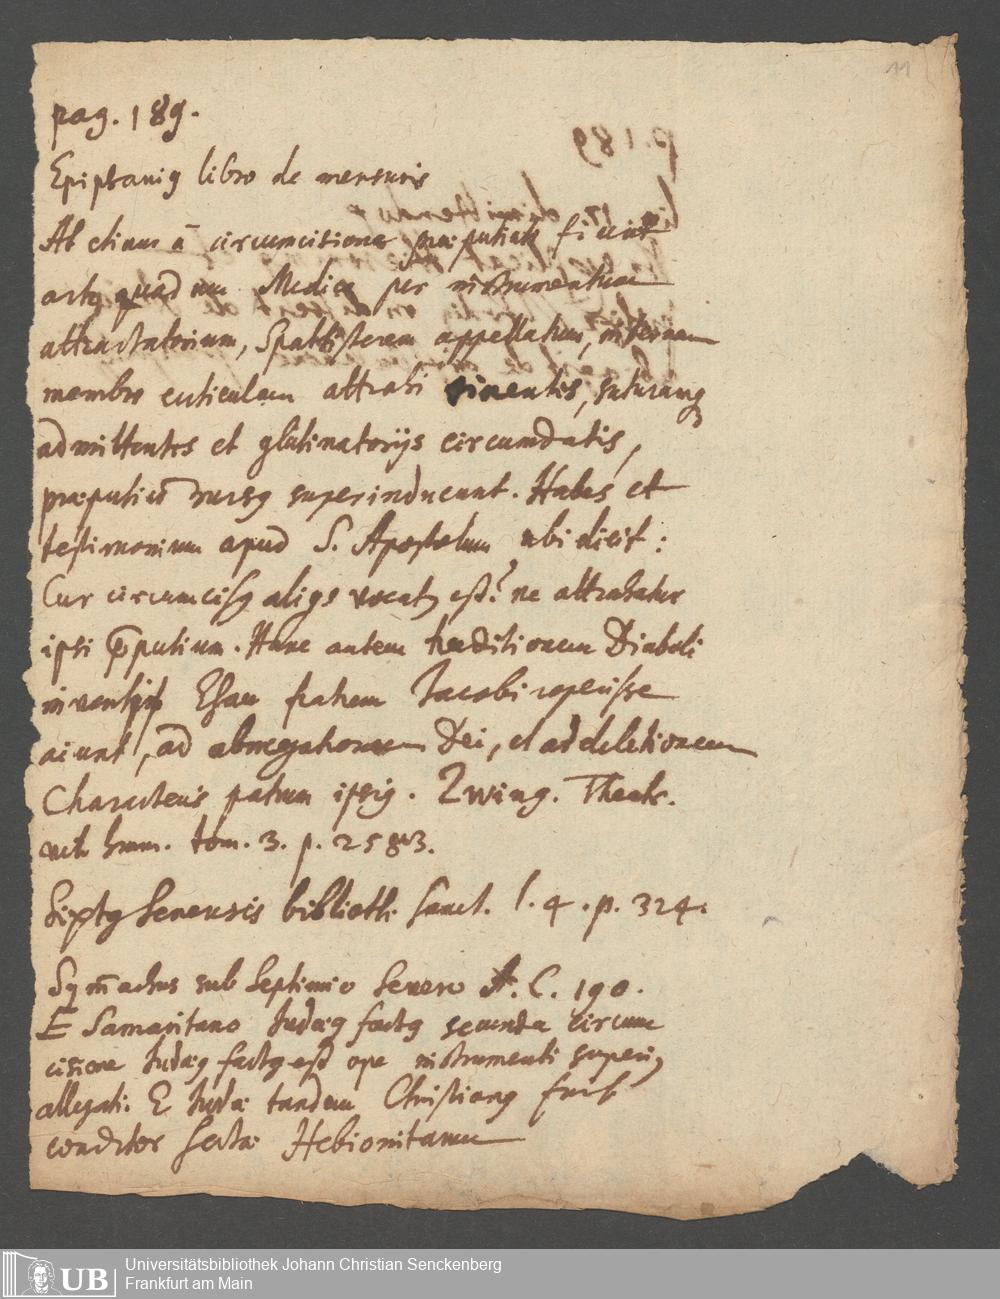 11
pag. 189.
Epiphaniꝰ libro de mensuris
At etiam à circumcisione præputiati fiunt
artꝫ quadam Medica per instrumentum
attractatorium, Spathisterem appellatum, internam
membri cuticulam attrahi sinentes, suturamqꝫ
admittentes et glutinatorijs circumdatis,
præputiũ rursꝰ superinducunt. Habes et
testimonium apud S. Apostolum ubi dicit:
Cur circumcisꝰ aliqs vocatꝰ est? ne attrahatur
ipsi p̄putium. Hanc autem traditionem Diaboli
Esau fratrem Jacobi reperisse
aiunt, ad abnegationem Dei, et ad deletionem
Characteris patrum ipsiꝰ. Zwing. Theatr.
vit. hum. tom. 3. p. 2583.
Sixtꝰ Senensis biblioth. sanct. l. 4. p. 324.
Sym̄achus sub Septimio Severo A. C. 190.
E Samaritano Judæꝰ factꝰ secunda circum
cisione Judæꝰ factꝰ est ope instrumenti superiꝰ
allegati. E Judæo tandem Christianꝰ fuit
conditor sectæ Hebionitarum
p. 189
UB
Universitätsbibliothek Johann Christian Senckenberg
Frankfurt am Main